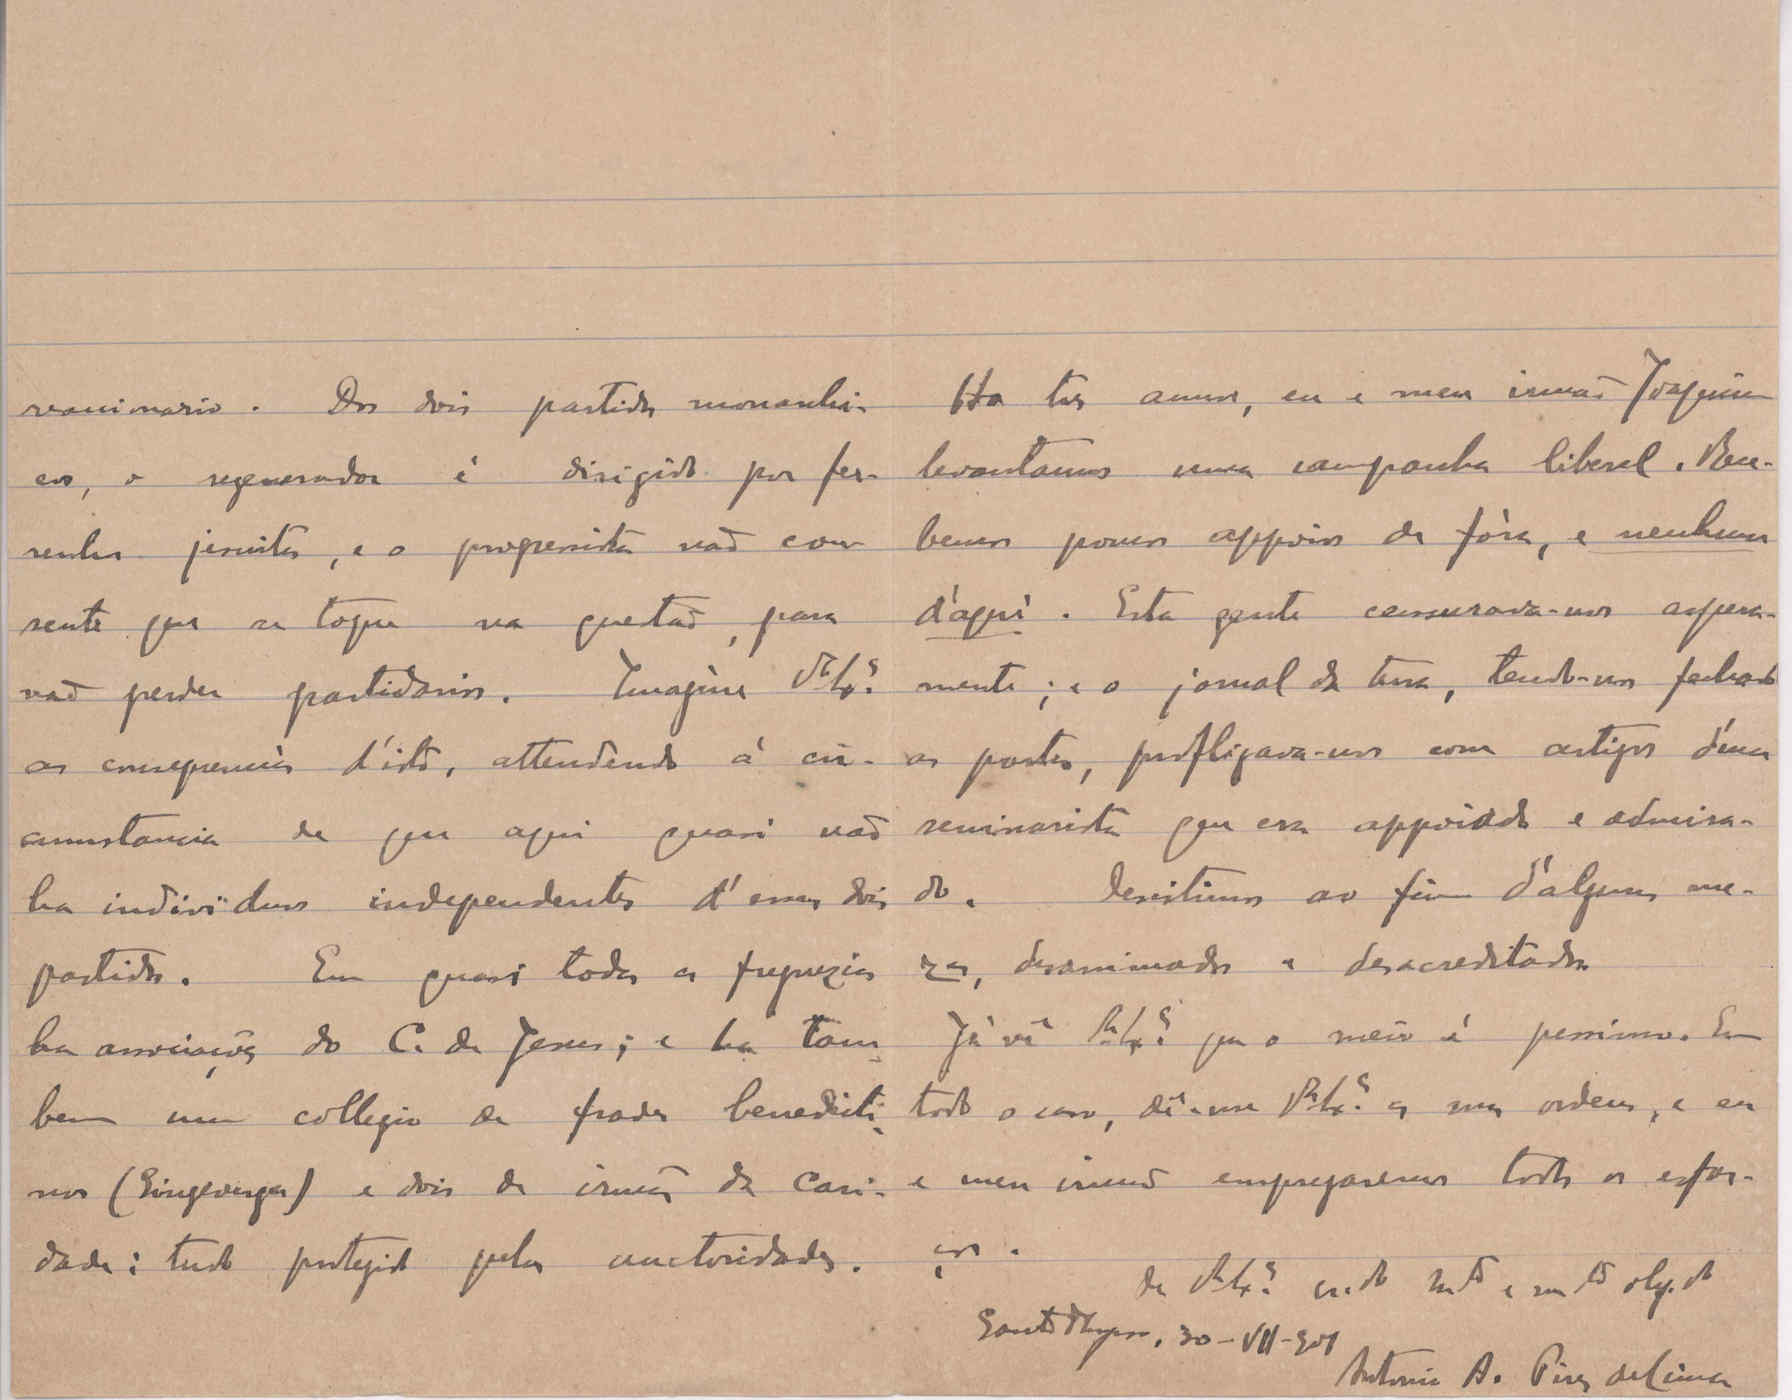 reaccionario. Dos dois partidos monarchi-
cos, o regenerador é dirigido por fer-
renhos jesuitas, e o progressista não con-
sente que se toque na questão, para
não perder partidarios. Imagine V. Ex.ª
as consequencias d'isto, attendendo á cir-
cumstancia de que aqui quasi não
ha individuos independentes d'esses dois
partidos. Em quasi todas as freguezias
ha associações do C. de Jesus; e ha tam-
bem um collegio de frades benedicti-
nos (Singeverga) e dois de irmãs da Cari-
dade: tudo protegido pelas auctoridades.
Ha tres annos, eu e meu irmão Joaquim
levantamos uma campanha liberal. Rece-
bemos poucos appoios de fóra, e nenhum
d'aqui. Esta gente censurava-nos aspera-
mente; e o jornal da terra, tendo-nos fechado
as portas, profligava-nos com artigos d'um
seminarista que era appoiado e admira-
do. Desistimos ao fim d'alguns me-
zes, desanimados e desacreditados.
Já vê V. Ex.ª que o meio é pessimo. Em
todo o caso, dê-me V. Ex.ª as suas ordens, e eu
e meu irmão empregaremos todos os esfor-
ços.
De V. Ex.ª cr.do m.to e m.to obg.do
Santo Thyrso, 30-VII-901
Antonio A. Pires de Lima